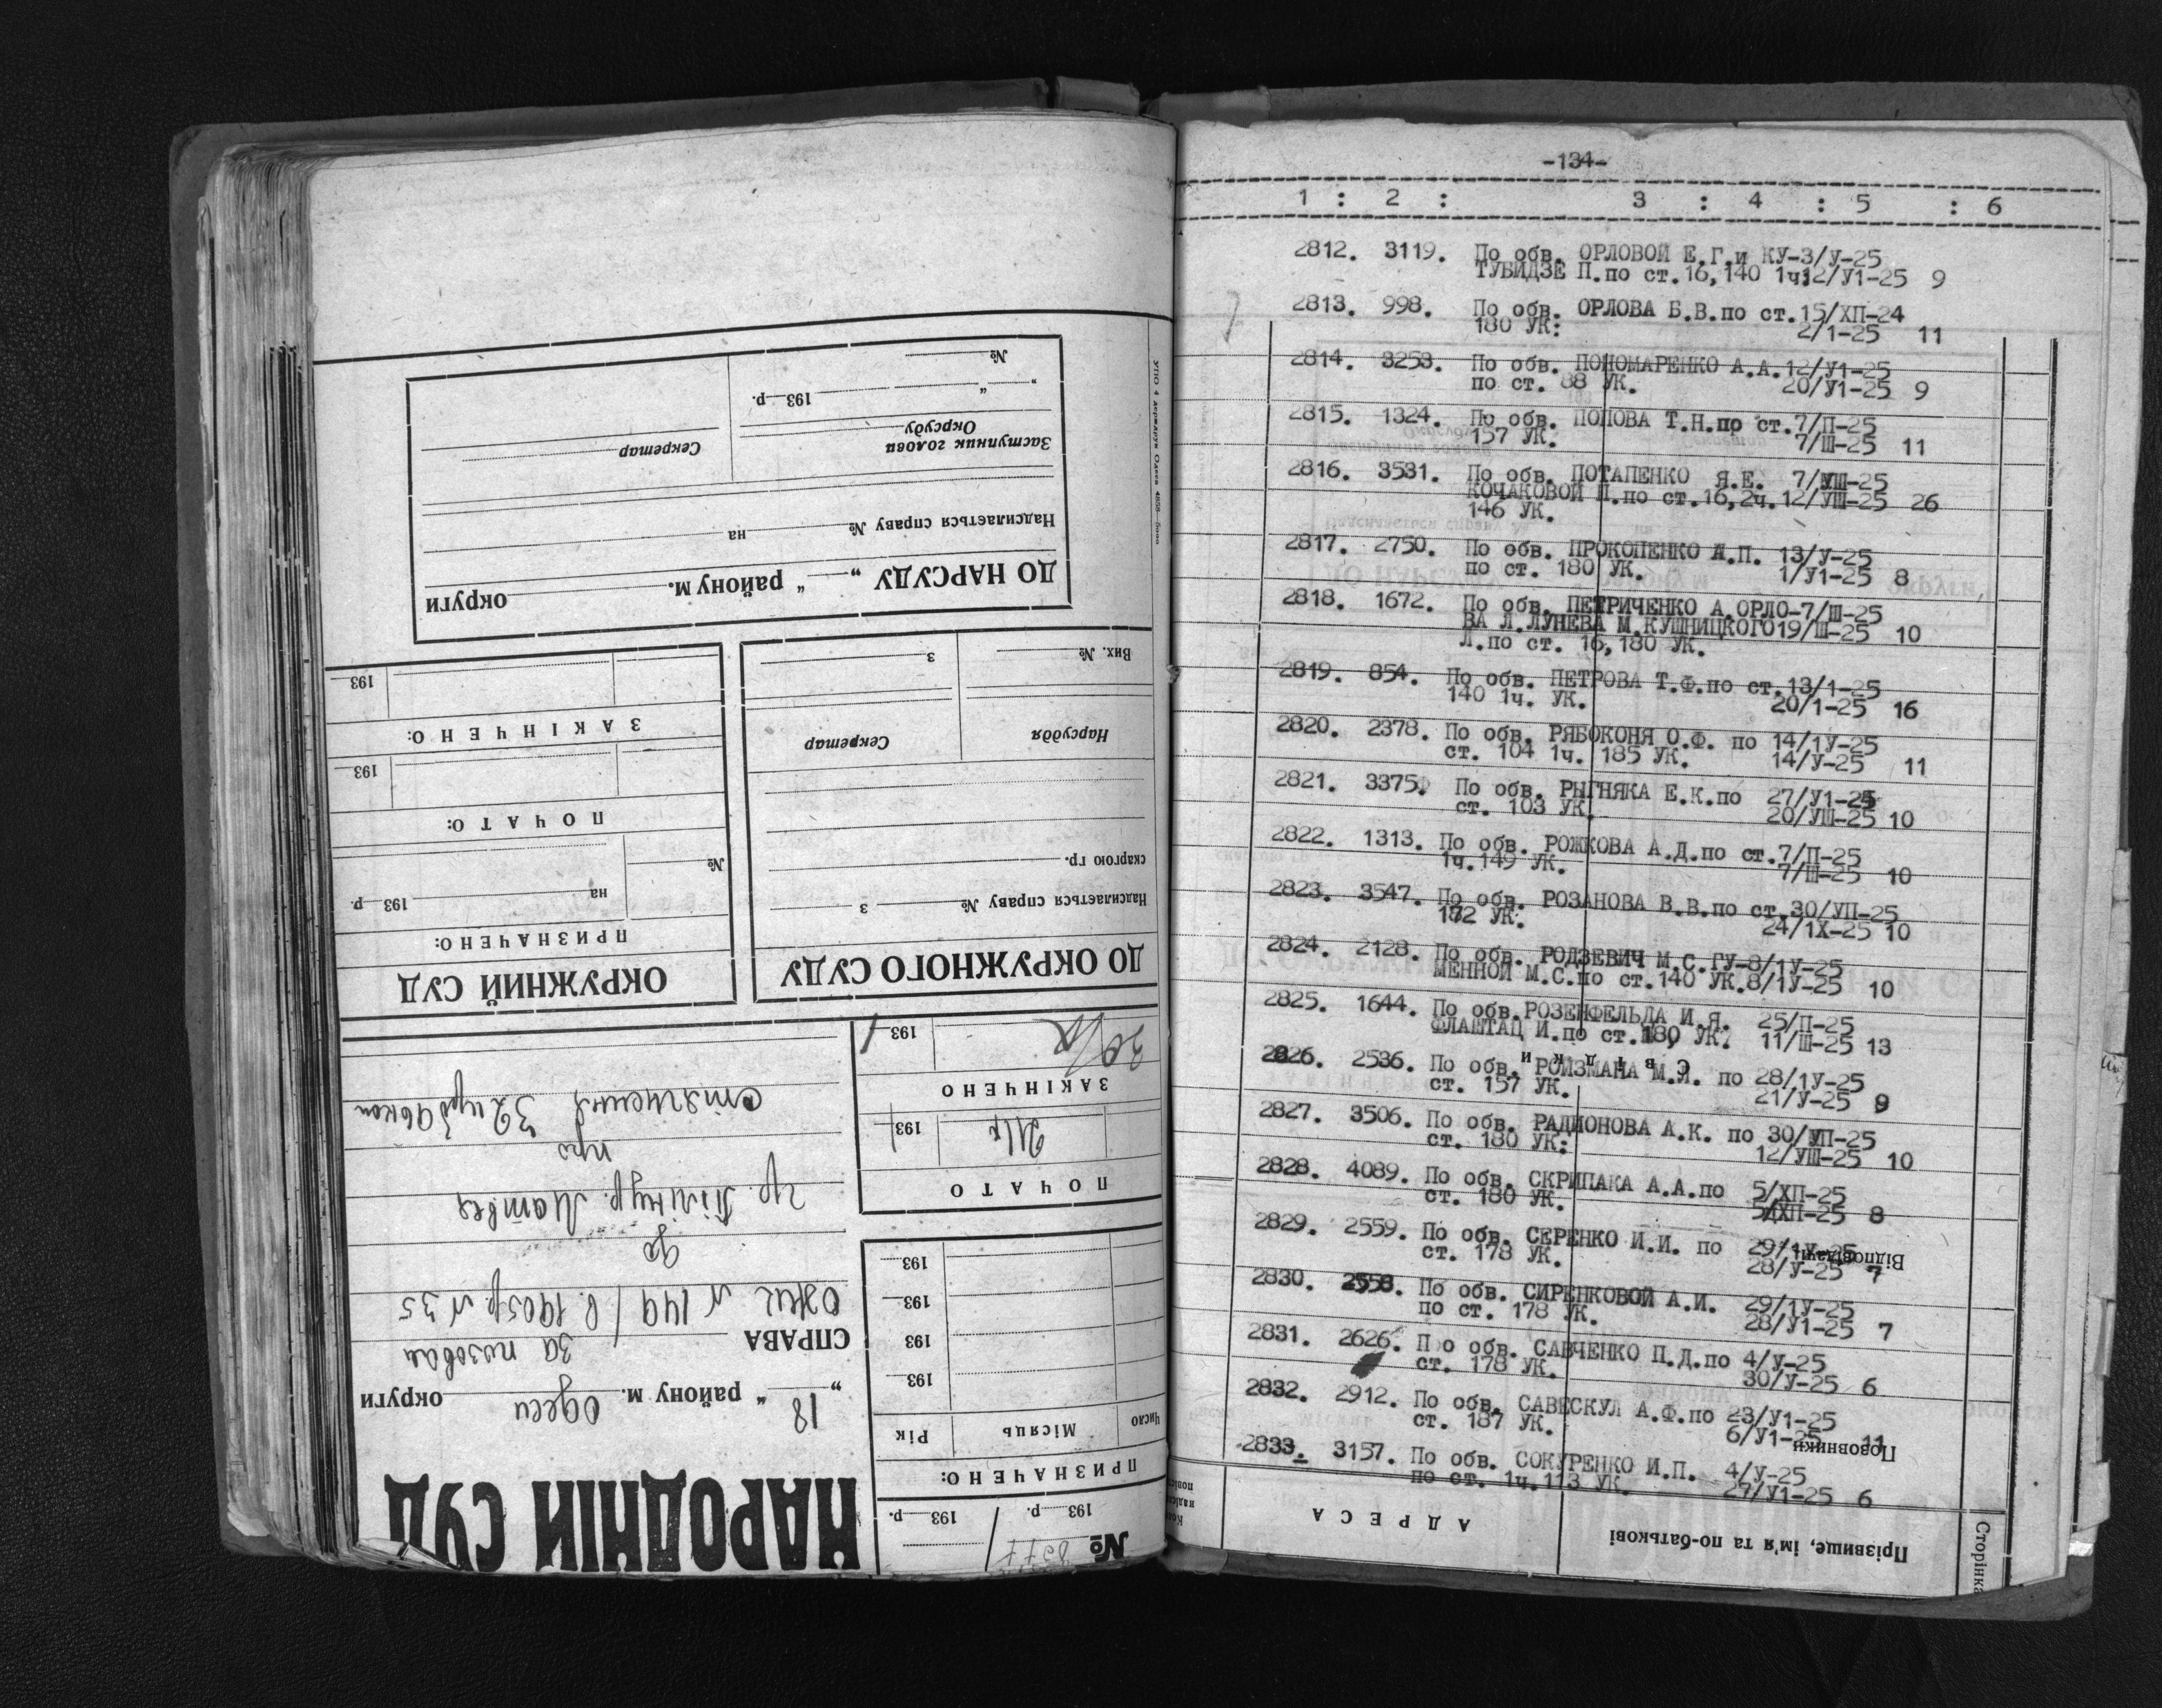 -134-
1 : 2 : 3 : 4 : 5 : 6
2812. 3119. По обв. ОРЛОВОЙ Е.Г.и КУ-3/У-25
ТУБИДЗЕ П.по ст.16,140 1ч12/У1-25 9
2813. 998. По обв. ОРЛОВА Б.В.по ст.15/ХП-24
180 УК: 2/1-25 11
2814. 3253. По обв. ПОНОМАРЕНКО А.А.12/У1-25
по ст. 88 УК. 20/У1-25 9
2815. 1324. По обв. ПОПОВА Т.Н.по ст.7/П-25
157 УК. 7/Ш-25 11
2816. 3531. По обв. ПОТАПЕНКО Я.Е. 7/УШ-25
КОЧАКОВОЙ П.по ст.16,2ч.12/УШ-25 26
146 УК.
2817. 2750. По обв. ПРОКОПЕНКО А.П. 13/У-25
по ст. 180 УК. 1/У1-25 8
2818. 1672. По обв. ПЕТРИЧЕНКО А.ОРЛО-7/Ш-25
ВА Л.ЛУНЕВА М.КУШНИЦКОГО19/Ш-25 10
Л.по ст. 16,180 УК.
2819. 854. По обв. ПЕТРОВА Т.Ф.по ст.13/1-25
140 1ч. УК. 20/1-25 16
2820. 2378. По обв. РЯБОКОНЯ О.Ф. по 14/1У-25
ст. 104 1ч. 185 УК. 14/У-25 11
2821. 3375. По обв. РЫГНЯКА Е.К.по 27/У1-25
ст. 103 УК. 20/УШ-25 10
2822. 1313. По обв. РОЖКОВА А.Д.по ст.7/П-25
1ч.149 УК. 7/Ш-25 10
2823. 3547. По обв. РОЗАНОВА В.В.по ст.30/УП-25
182 УК. 24/1Х-25 10
2824. 2128. По обв. РОДЗЕВИЧ М.С.ГУ-8/1У-25
МЕННОЙ М.С.по ст.140 УК.8/1У-25 10
2825. 1644. По обв.РОЗЕНФЕЛЬДА И.Я. 25/П-25
ФЛАШТАЦ И.по ст. 180 УК. 11/Ш-25 13
2826. 2536. По обв. РОЙЗМАНА М.Л. по 28/1У-25
ст. 157 УК. 21/У-25 9
2827. 3506. По обв. РАДИОНОВА А.К. по 30/УП-25
ст. 180 УК: 12/УШ-25 10
2828. 4089. По обв. СКРИПАКА А.А.по 5/ХП-25
ст. 180 УК. 5/ХП-25 8
2829. 2559. По обв. СЕРЕНКО И.И. по 29/1У-25
ст. 178 УК. 28/У-25 7
2830. 2558. По обв. СИРЕНКОВОЙ А.И. 29/1У-25
по ст. 178 УК. 28/У1-25 7
2831. 2626. По обв. САВЧЕНКО П.Д.по 4/У-25
ст. 178 УК. 30/У-25 6
2832. 2912. По обв. САВЕСКУЛ А.Ф.по 23/У1-25
ст. 187 УК. 6/У1-25 11
2833. 3157. По обв. СОКУРЕНКО И.П. 4/У-25
по ст. 1ч.113 УК. 27/У1-25 6
Свідки
Відповідачі
Позовники
Сторінка
Прізвище, ім'я та по-батькові
АДРЕСА
НАРОДНІЙ СУД
18 " району м. Одеси округи
СПРАВА за позовом
ОЖЕ № 149 / в. 1905р. № 35
до
гр. Матвея
про
стягнення 32
№ 8377
193 р. 193 р.
ПРИЗНАЧЕНО:
Число Місяць Рік
193
193
193
193
ПОЧАТО
21/X 193
ЗАКІНЧЕНО
30/X 193
ДО ОКРУЖНОГО СУДУ
Надсилається справу № З
скаргою гр.
Нарсуддя Секретар
Вих. № З
ОКРУЖНИЙ СУД
ПРИЗНАЧЕНО:
№ на 193 р.
ПОЧАТО:
193
ЗАКІНЧЕНО:
193
ДО НАРСУДУ „ " району м. округи
Надсилається справу № на
Заступник голови
Окрсуду Секретар
„ " 193 р.
№